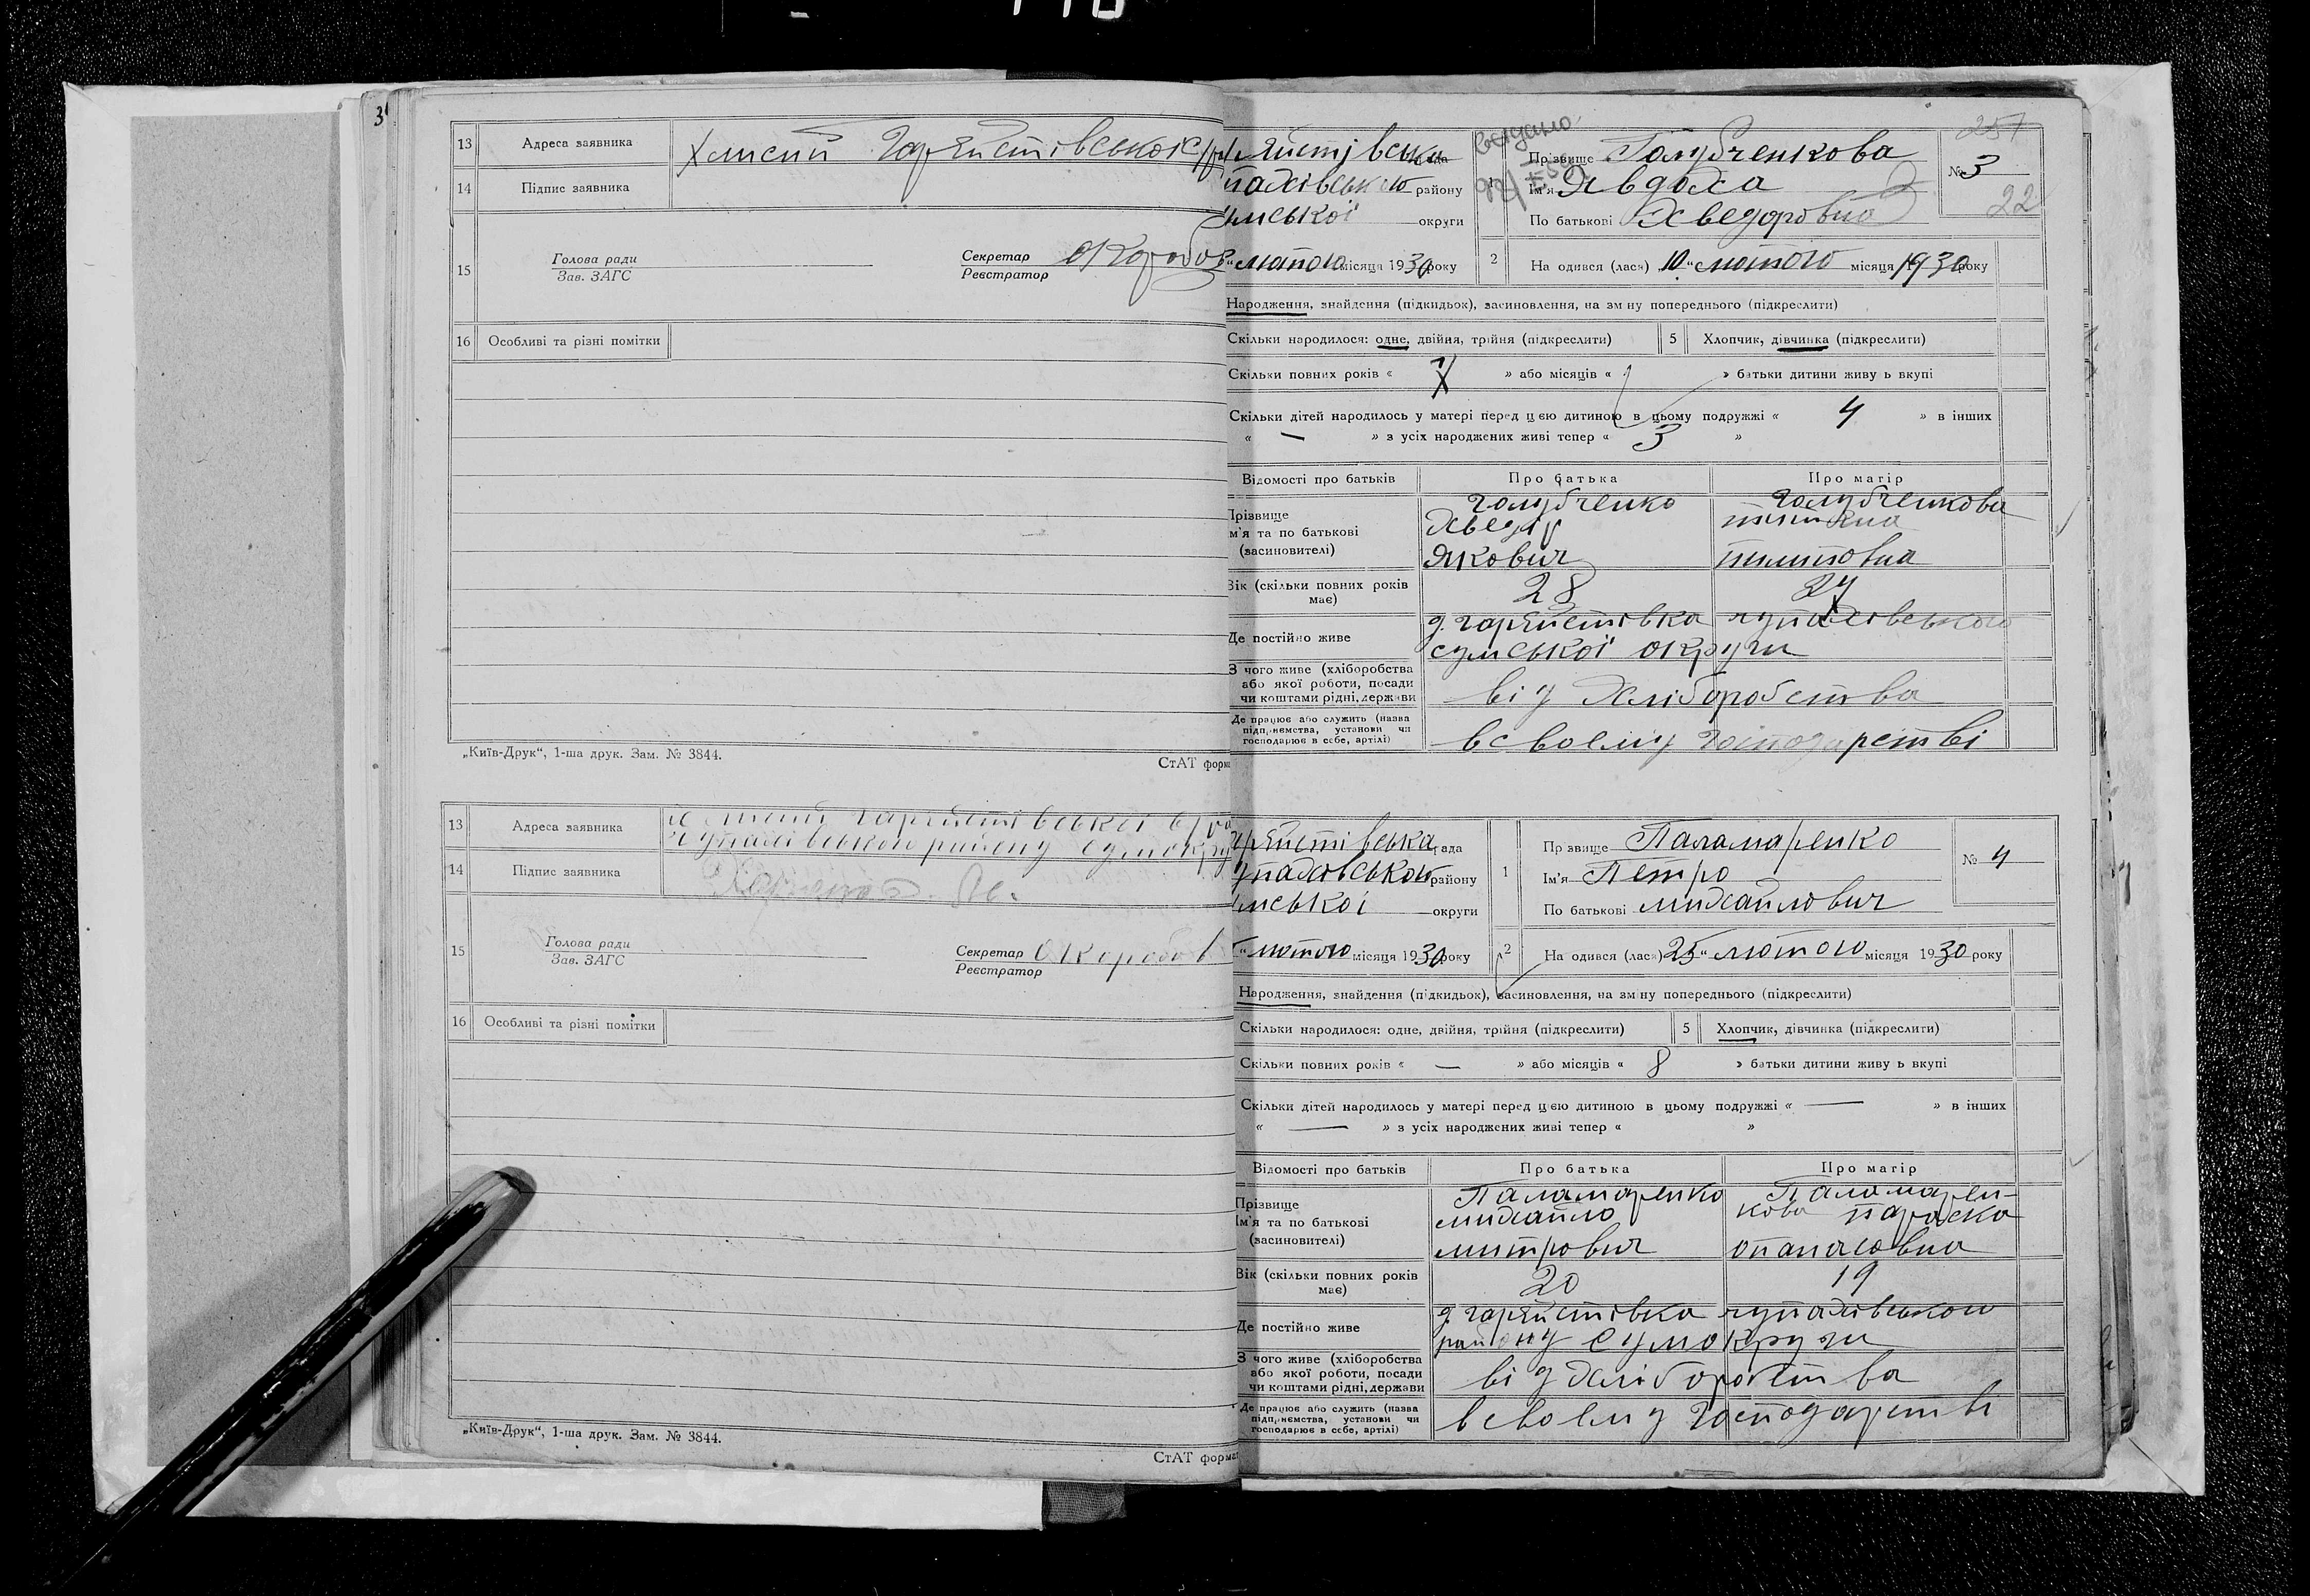 3
13 Адреса заявника
14 Підпис заявника
15 Голова ради
Зав. ЗАГС
Секретар
Реєстратор
16 Особливі та різні помітки
„Київ-Друк“, 1-ша друк. Зам. № 3844.
СтАТ форма
13 Адреса заявника
14 Підпис заявника
15 Голова ради
Зав. ЗАГС
Секретар
Реєстратор
16 Особливі та різні помітки
„Київ-Друк“, 1-ша друк. Зам. № 3844.
СтАТ формат
видано
257
району
округи
лютого місяця 1930 року
1 Прізвище Голубченкова
Ім'я Явдоха
По батькові Хведоровна
№ 3
22
2 На одився (лася) „10“ лютого місяця 1930 року
Народження, знайдення (підкидьок), засиновлення, на зм ну попереднього (підкреслити)
Скільки народилося: одне, двійня, трійня (підкреслити) 5 Хлопчик, дівчинка (підкреслити)
Скільки повних років « 7 » або місяців « » батьки дитини живу ь вкупі
Скільки дітей народилось у матері перед цією дитиною в цьому подружжі « 4 » в інших
« — » з усіх народжених живі тепер « 3 »
Відомості про батьків Про батька Про матір
Прізвище Голубченко Голубченкова
м'я та по батькові Хведір
(засиновителі) Якович Пилиповна
Вік (скільки повних років 28 27
має)
Де постійно живе
сумської округи
З чого живе (хліборобства
або якої роботи, посади
чи коштами рідні, держави від хліборобства
Де працює або служить (назва
підприємства, установи чи
господарює в себе, артілі) в своєму господарстві
рада
району
округи
лютого місяця 1930 року
1 Пр звище Паламаренко
Ім'я Петро
По батькові михайлович
№ 4
2 На одився (лася) 25 “ лютого місяця 1930 року
Народження, знайдення (підкидьок), засиновлення, на зміну попереднього (підкреслити)
Скільки народилося: одне, двійня, трійня (підкреслити) 5 Хлопчик, дівчинка (підкреслити)
Скільки повних років « — » або місяців « 8 » батьки дитини живу ь вкупі
Скільки дітей народилось у матері перед цією дитиною в цьому подружжі « — » в інших
« — » з усіх народжених живі тепер « »
Відомості про батьків Про батька Про матір
Прізвище Паламаренко Паламарен-
Ім'я та по батькові михайло кова параска
(засиновителі) митрович опанасовна
Вік (скільки повних років 20 19
має)
Де постійно живе
району сумокруги
З чого живе (хліборобства
або якої роботи, посади
чи коштами рідні, держави від хліборобства
Де працює або служить (назва
підприємства, установи чи
господарює в себе, артілі) в своєму господарстві